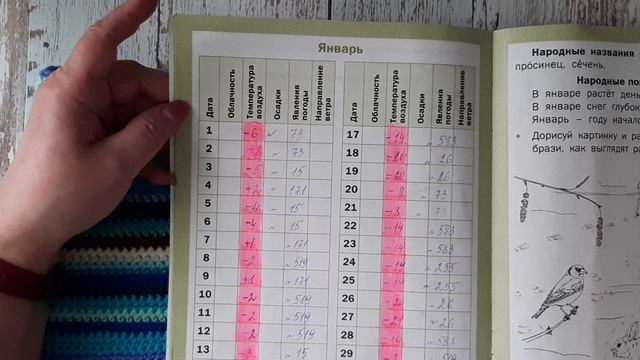 Январь
Дата Облачность Температура воздуха Осадки Явления погоды Направление ветра
1 -6 ~ 73
2 ~ 73
3 -5 ~ 15
4 +2 ~ 171
5 ~ 15
6 -4 ~ 15
7 +1 ~ 171
8 -2 ~ 519
9 +1 ~ 171
10 -2 ~ 519
11 -2 ~ 519
12 -2 ~ 519
13 -3 ~ 15
Дата Облачность Температура воздуха Осадки Явления погоды Направление ветра
17 -14 ~ 583
18 -20 ~ 26
19 -20 ~ 26
20 -8 ~ 73
21 -8 ~ 73
22 -14 ~ 583
23 -14 ~ 583
24 -19 ~ 235
25 ~ 235
26 ~ 26
27 -21 ~ 26
28 ~ 583
29
Народные названия
про́синец, се́чень.
Народные
В январе растёт день
В январе снег
Январь – году
Дорисуй картинку и
брази, как выглядят